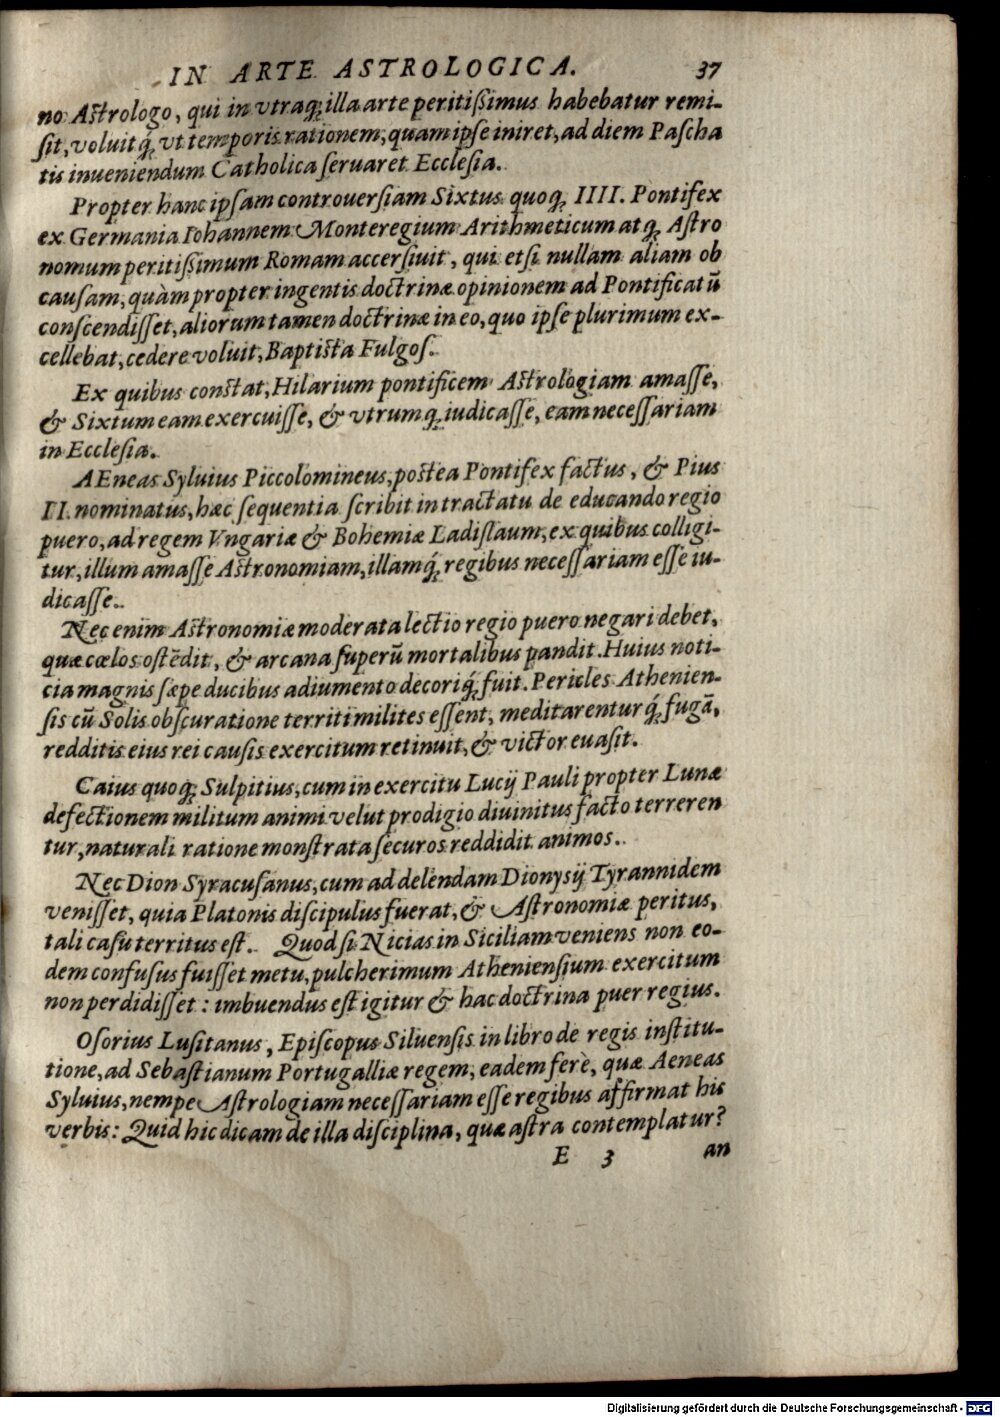 IN ARTE ASTROLOGICA. 37
no Astrologo, qui in vtraq; illa arte peritißimus habebatur remi-
ſit, voluitq́; vt temporis rationem, quam ipſe iniret, ad diem Paſcha
tis inueniendum Catholica ſeruaret Eccleſia.
Propter hanc ipſam controuerſiam Sixtus quoq; IIII. Pontifex
ex Germania Iohannem Monteregium Arithmeticum atq; Aſtro
nomum peritißimum Romam accerſiuit, qui etſi nullam aliam ob
cauſam, quàm propter ingentis doctrinæ opinionem ad Pontificatū
conſcendiſſet, aliorum tamen doctrinæ in eo, quo ipſe plurimum ex-
cellebat, cedere voluit, Baptista Fulgoſ.
Ex quibus constat, Hilarium pontificem Astrologiam amaſſe,
& Sixtum eam exercuiſſe, & vtrumq; iudicaſſe, eam neceſſariam
in Eccleſia.
AEneas Syluius Piccolomineus, postea Pontifex factus, & Pius
II. nominatus, hæc ſequentia ſcribit in tractatu de educando regio
puero, ad regem Vngariæ & Bohemiæ Ladiſlaum, ex quibus colligi-
tur, illum amaſſe Astronomiam, illamq́; regibus neceſſariam eſſe iu-
dicaſſe.
Nec enim Astronomiæ moderata lectio regio puero negari debet,
quæ cœlos ostēdit, & arcana ſuperū mortalibus pandit. Huius noti-
cia magnis ſæpe ducibus adiumento decoriq́; fuit. Pericles Athenien-
ſis cū Solis obſcuratione territi milites eſſent, meditarenturq́; fugā,
redditis eius rei cauſis exercitum retinuit, & victor euaſit.
Caius quoq; Sulpitius, cum in exercitu Lucij Pauli propter Lunæ
defectionem militum animi velut prodigio diuinitus facto terreren
tur, naturali ratione monſtrata ſecuros reddidit animos.
Nec Dion Syracuſanus, cum ad delendam Dionysij Tyrannidem
veniſſet, quia Platonis diſcipulus fuerat, & Aſtronomiæ peritus,
tali caſu territus eſt. Quod ſi Nicias in Siciliam veniens non eo-
dem confuſus fuiſſet metu, pulcherimum Athenienſium exercitum
non perdidiſſet: imbuendus eſt igitur & hac doctrina puer regius.
Oſorius Luſitanus, Epiſcopus Siluenſis in libro de regis inſtitu-
tione, ad Sebaſtianum Portugalliæ regem, eadem ferè, quæ Aeneas
Syluius, nempe Aſtrologiam neceſſariam eſſe regibus affirmat his
verbis: Quid hic dicam de illa diſciplina, quæ aſtra contemplatur?
E 3 an
Digitalisierung gefördert durch die Deutsche Forschungsgemeinschaft - DFG